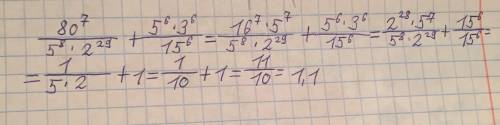 80⁷/(5⁸·2²⁹) + (5⁶·3⁶)/15⁶ = (16⁷·5⁷)/(5⁸·2²⁹) + (5⁶·3⁶)/15⁶ = (2²⁸·5⁷)/(5⁸·2²⁹) + 15⁶/15⁶ =
= 1/(5·2) + 1 = 1/10 + 1 = 11/10 = 1,1